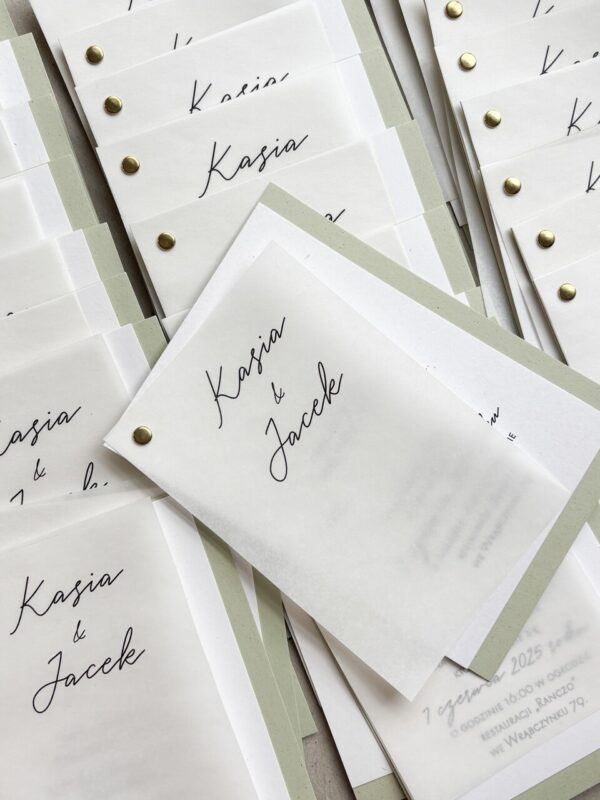 Kasia
Kasia
Kasia
&
Jacek
Kasia
&
Kasia
&
Jacek
7 czerwca 2025 roku
O GODZINIE 16:00 W OGRODZIE
RESTAURACJI „RANCZO”
WE WRĄBCZYNKU 79.